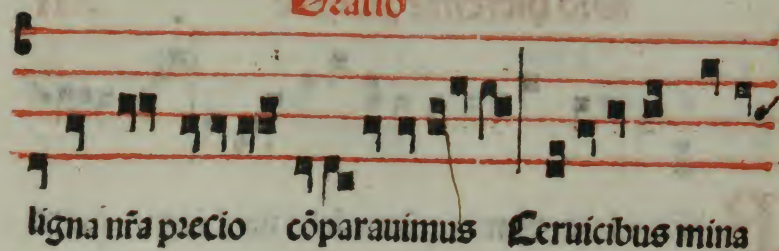 Oratio
ligna nr̃a precio cõparauimus Ceruicibus mina